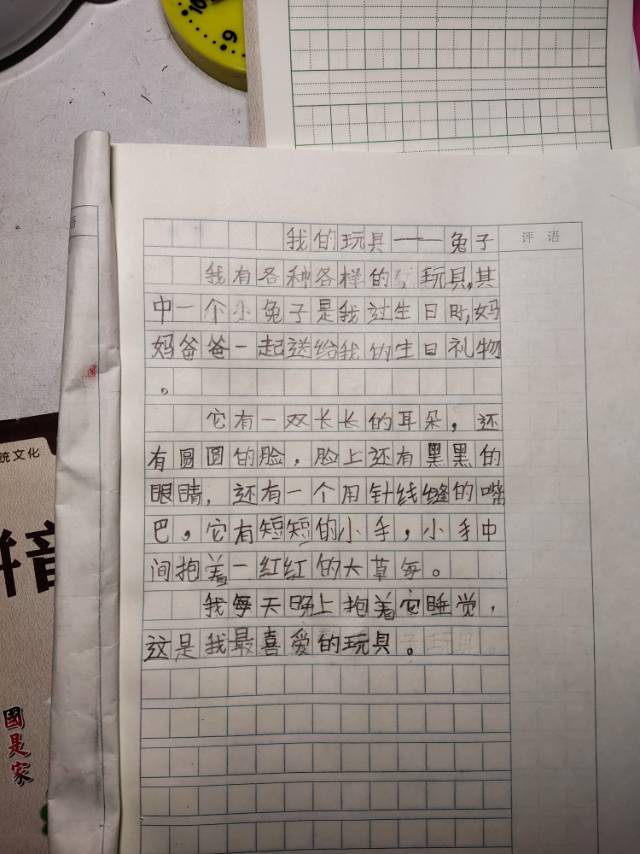 10
9
评语
我的玩具——兔子
我有各种各样的玩具,其
中一个小兔子是我过生日时,妈
妈爸爸一起送给我的生日礼物
。
它有一双长长的耳朵，还
有圆圆的脸，脸上还有黑黑的
眼睛，还有一个用针线缝的嘴
巴，它有短短的小手，小手中
间抱着一红红的大草每。
我每天晚上抱着它睡觉，
这是我最喜爱的玩具。
统文化
拼音
國是家